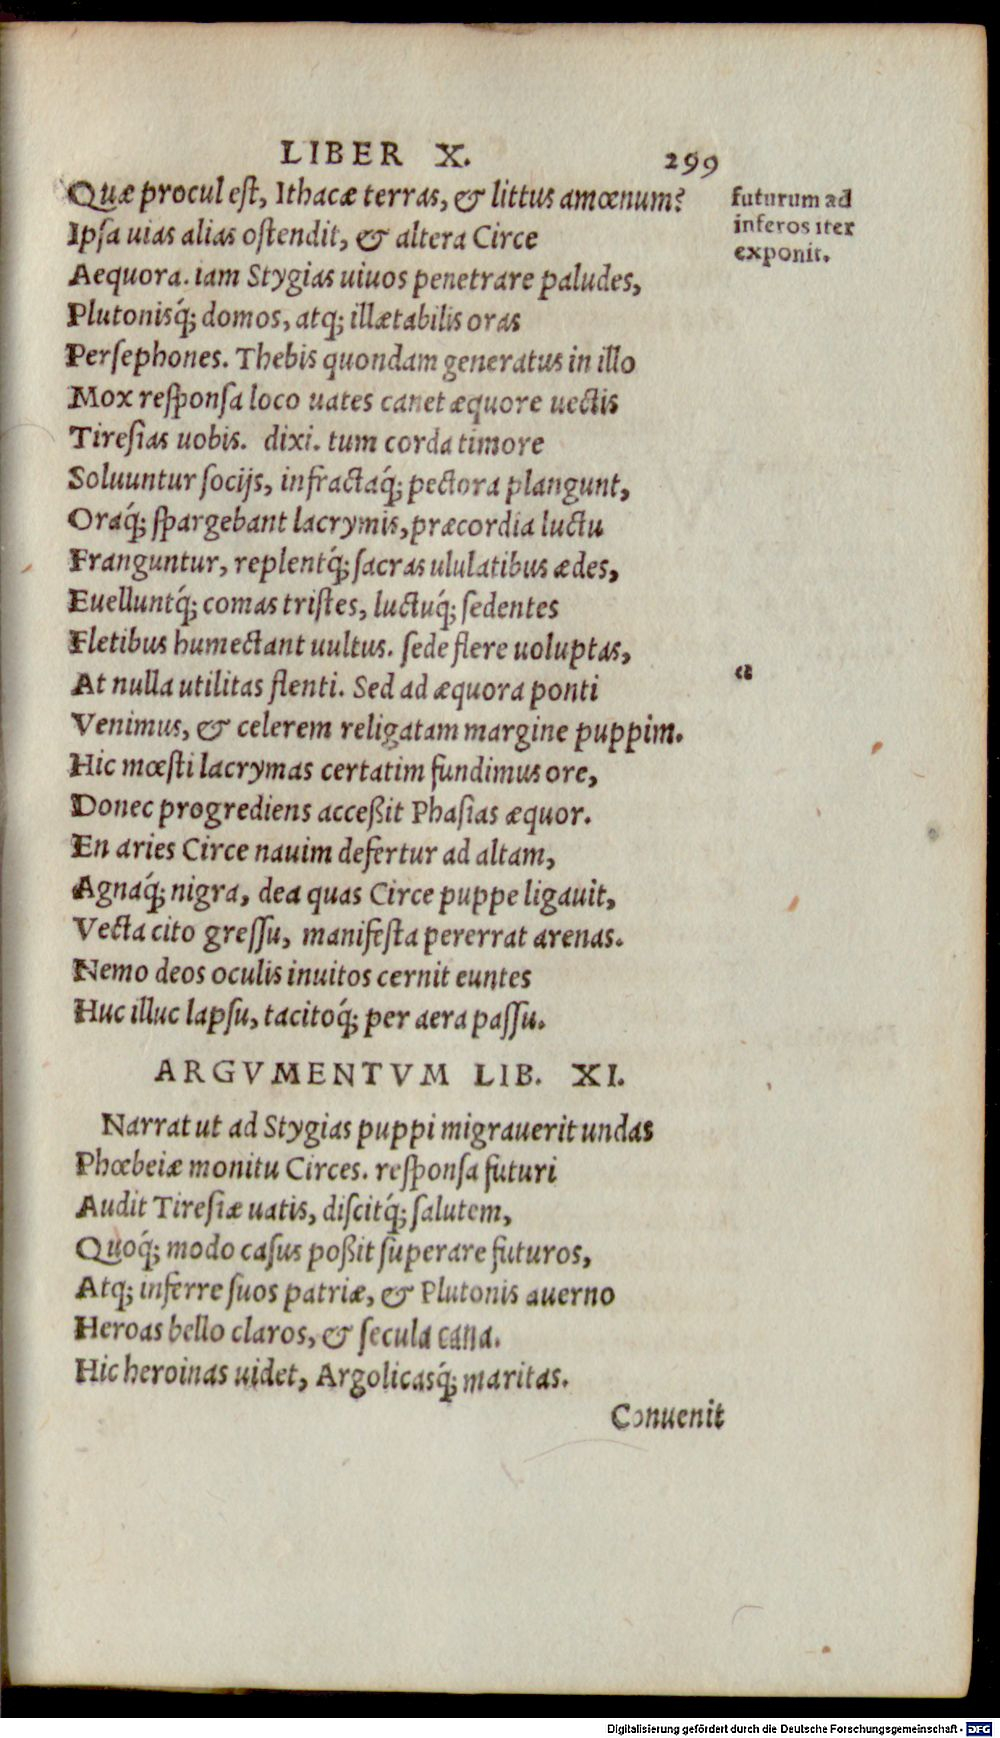 LIBER X. 299
Quæ procul est, Ithacæ terras, & littus amœnum?
futurum ad
inferos iter
exponit.
Ipsa uias alias ostendit, & altera Circe
Aequora. iam Stygias uiuos penetrare paludes,
Plutonisq́; domos, atq; illætabilis oras
Persephones. Thebis quondam generatus in illo
Mox responsa loco uates canet æquore uectis
Tiresias uobis. dixi. tum corda timore
Soluuntur socijs, infractaq́; pectora plangunt,
Oraq́; spargebant lacrymis, præcordia luctu
Franguntur, replentq́; sacras ululatibus ædes,
Euelluntq́; comas tristes, luctuq́; sedentes
Fletibus humectant uultus. sede flere uoluptas,
At nulla utilitas flenti. Sed ad æquora ponti
Venimus, & celerem religatam margine puppim.
Hic mœsti lacrymas certatim fundimus ore,
Donec progrediens acceßit Phasias æquor.
En aries Circe nauim defertur ad altam,
Agnaq́; nigra, dea quas Circe puppe ligauit,
Vecta cito gressu, manifesta pererrat arenas.
Nemo deos oculis inuitos cernit euntes
Huc illuc lapsu, tacitoq́; per aera passu.
ARGVMENTVM LIB. XI.
Narrat ut ad Stygias puppi migrauerit undas
Phœbeiæ monitu Circes. responsa futuri
Audit Tiresiæ uatis, discitq́; salutem,
Quoq́; modo casus poßit superare futuros,
Atq; inferre suos patriæ, & Plutonis auerno
Heroas bello claros, & secula cana.
Hic heroinas uidet, Argolicasq́; maritas.
Conuenit
Digitalisierung gefördert durch die Deutsche Forschungsgemeinschaft - DFG